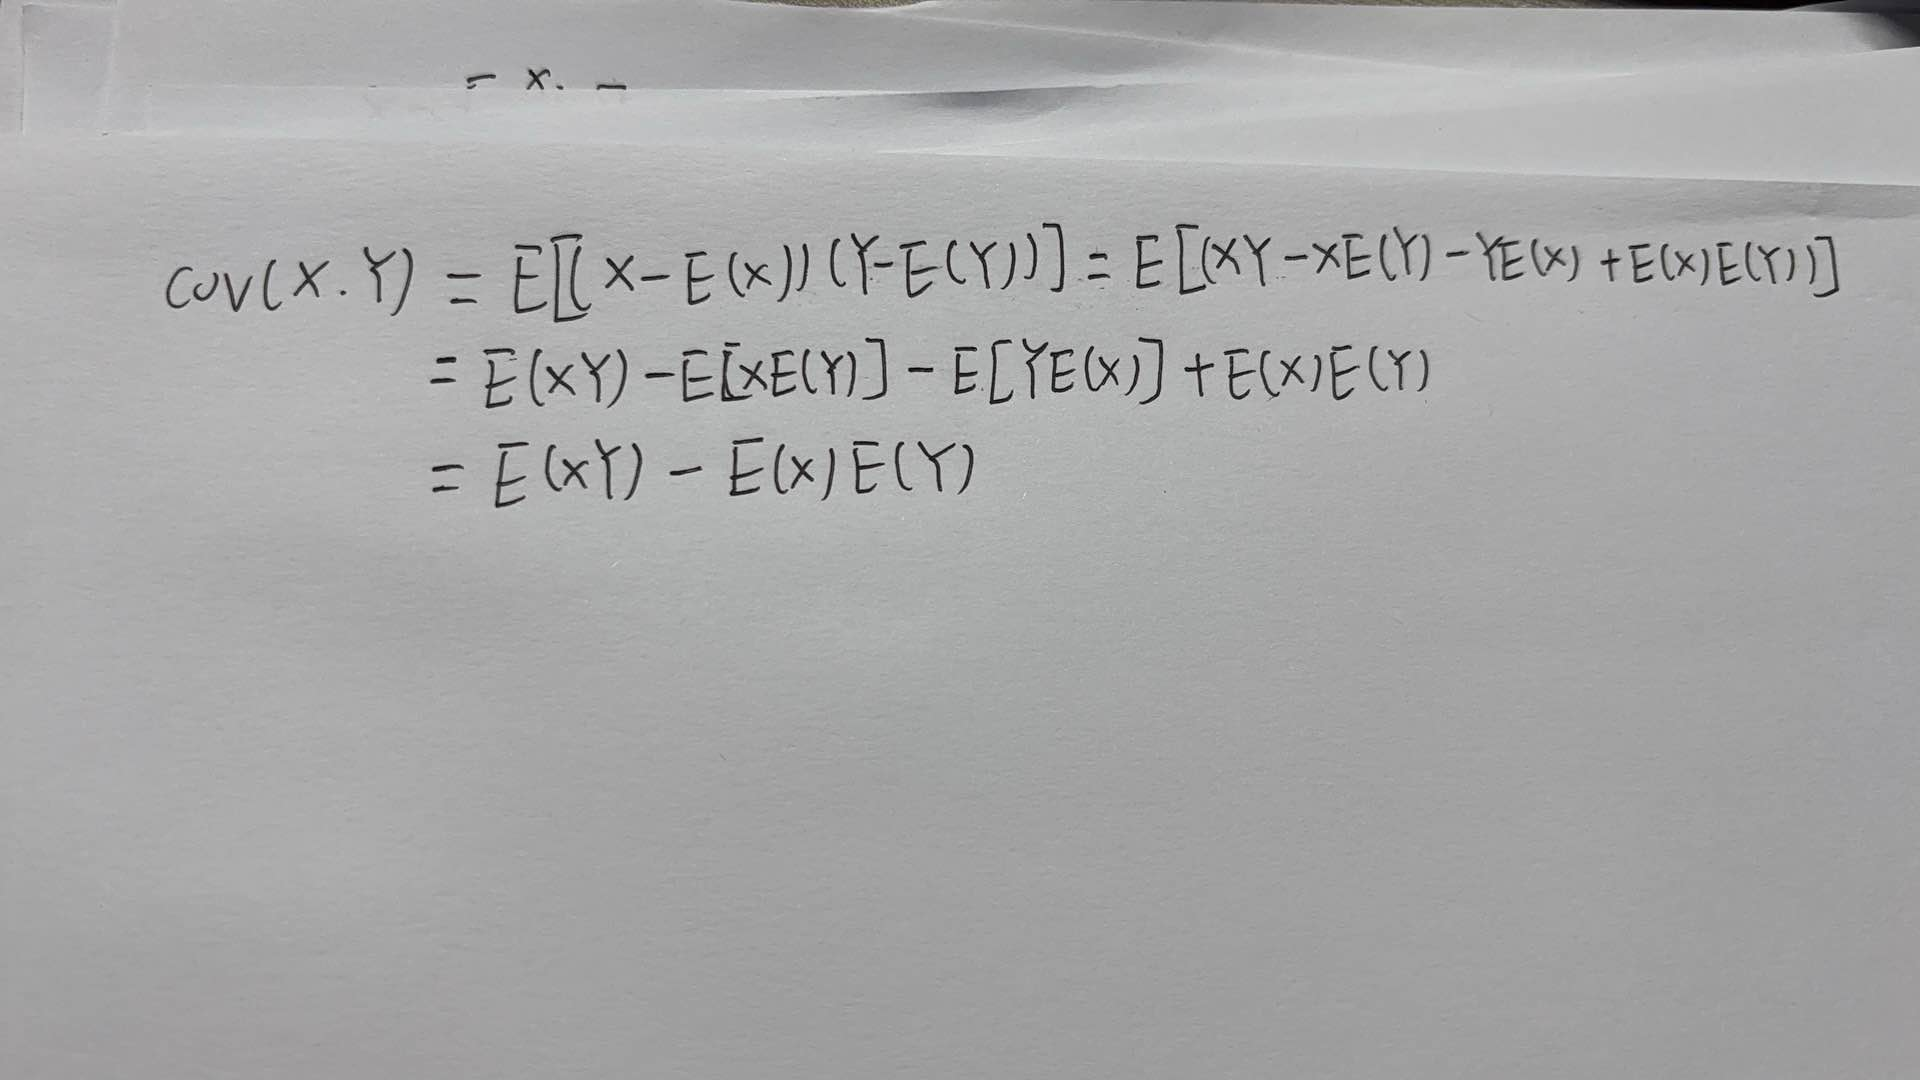 = x. -
cov(X.Y) = E[(X-E(x))(Y-E(Y))] = E[(XY-XE(Y)-YE(X)+E(x)E(Y))]
= E(XY)-E[XE(Y)]-E[YE(X)]+E(X)E(Y)
= E(XY)-E(x)E(Y)